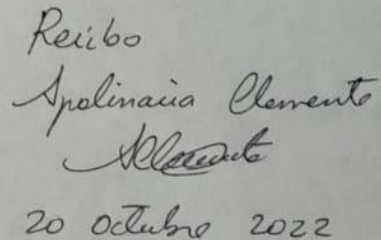 Recibo
Apolinaria Clemente
AClemente
20 octubre 2022